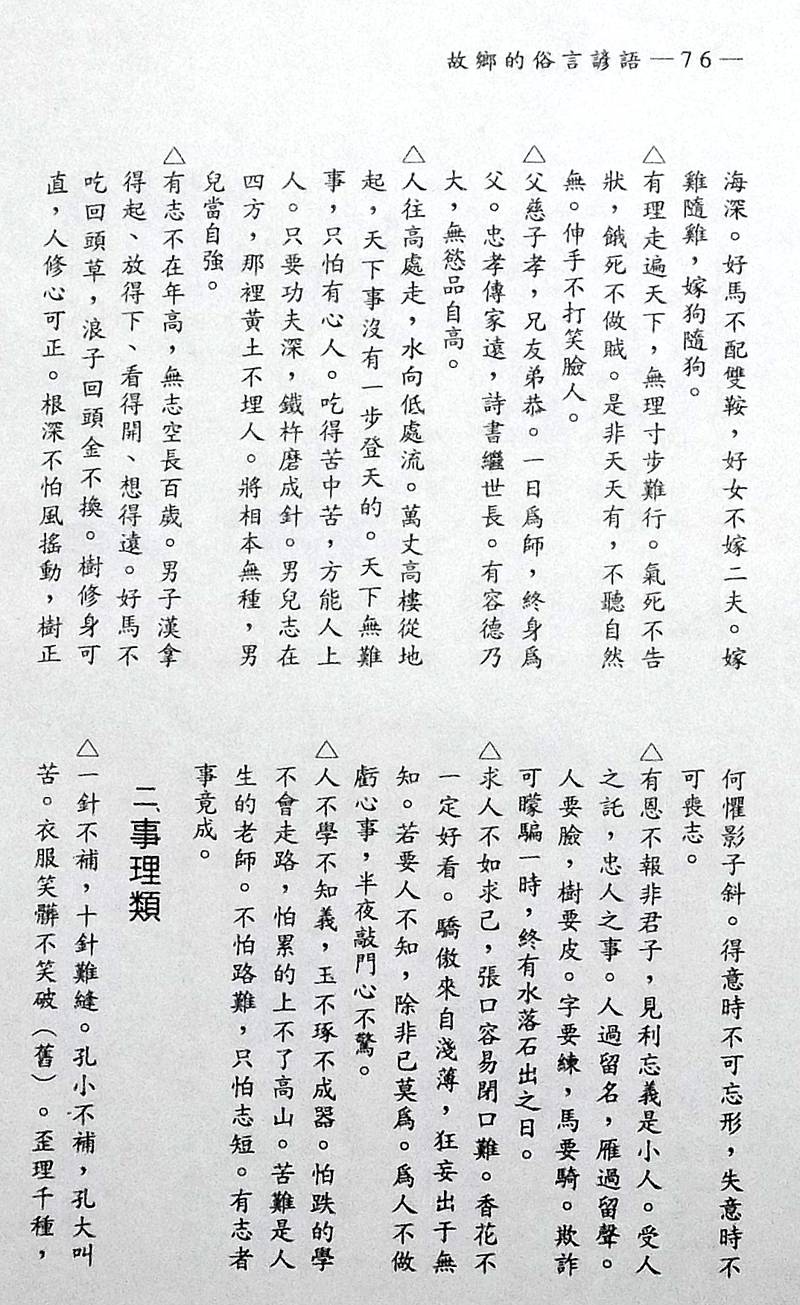 故鄉的俗言諺語—76—
海深。好馬不配雙鞍，好女不嫁二夫。嫁
雞隨雞，嫁狗隨狗。
△有理走遍天下，無理寸步難行。氣死不告
狀，餓死不做賊。是非天天有，不聽自然
無。伸手不打笑臉人。
△父慈子孝，兄友弟恭。一日爲師，終身爲
父。忠孝傳家遠，詩書繼世長。有容德乃
大，無慾品自高。
△人往高處走，水向低處流。萬丈高樓從地
起，天下事沒有一步登天的。天下無難
事，只怕有心人。吃得苦中苦，方能人上
人。只要功夫深，鐵杵磨成針。男兒志在
四方，那裡黃土不埋人。將相本無種，男
兒當自強。
△有志不在年高，無志空長百歲。男子漢拿
得起、放得下、看得開、想得遠。好馬不
吃回頭草，浪子回頭金不換。樹修身可
直，人修心可正。根深不怕風搖動，樹正
何懼影子斜。得意時不可忘形，失意時不
可喪志。
△有恩不報非君子，見利忘義是小人。受人
之託，忠人之事。人過留名，雁過留聲。
人要臉，樹要皮。字要練，馬要騎。欺詐
可矇騙一時，終有水落石出之日。
△求人不如求己，張口容易閉口難。香花不
一定好看。驕傲來自淺薄，狂妄出于無
知。若要人不知，除非已莫爲。爲人不做
虧心事，半夜敲門心不驚。
△人不學不知義，玉不琢不成器。怕跌的學
不會走路，怕累的上不了高山。苦難是人
生的老師。不怕路難，只怕志短。有志者
事竟成。
二、事理類
△一針不補，十針難縫。孔小不補，孔大叫
苦。衣服笑髒不笑破（舊）。歪理千種，